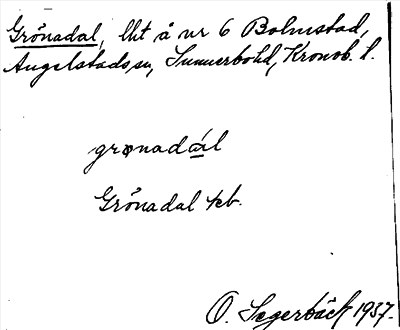 Grönadal, lht å nr 6 Bolmstad,
Angelstads sn, Sunnerbo hd, Kronob. l.
grønadál
Grönadal kb.
O. Segerbäck 1937.